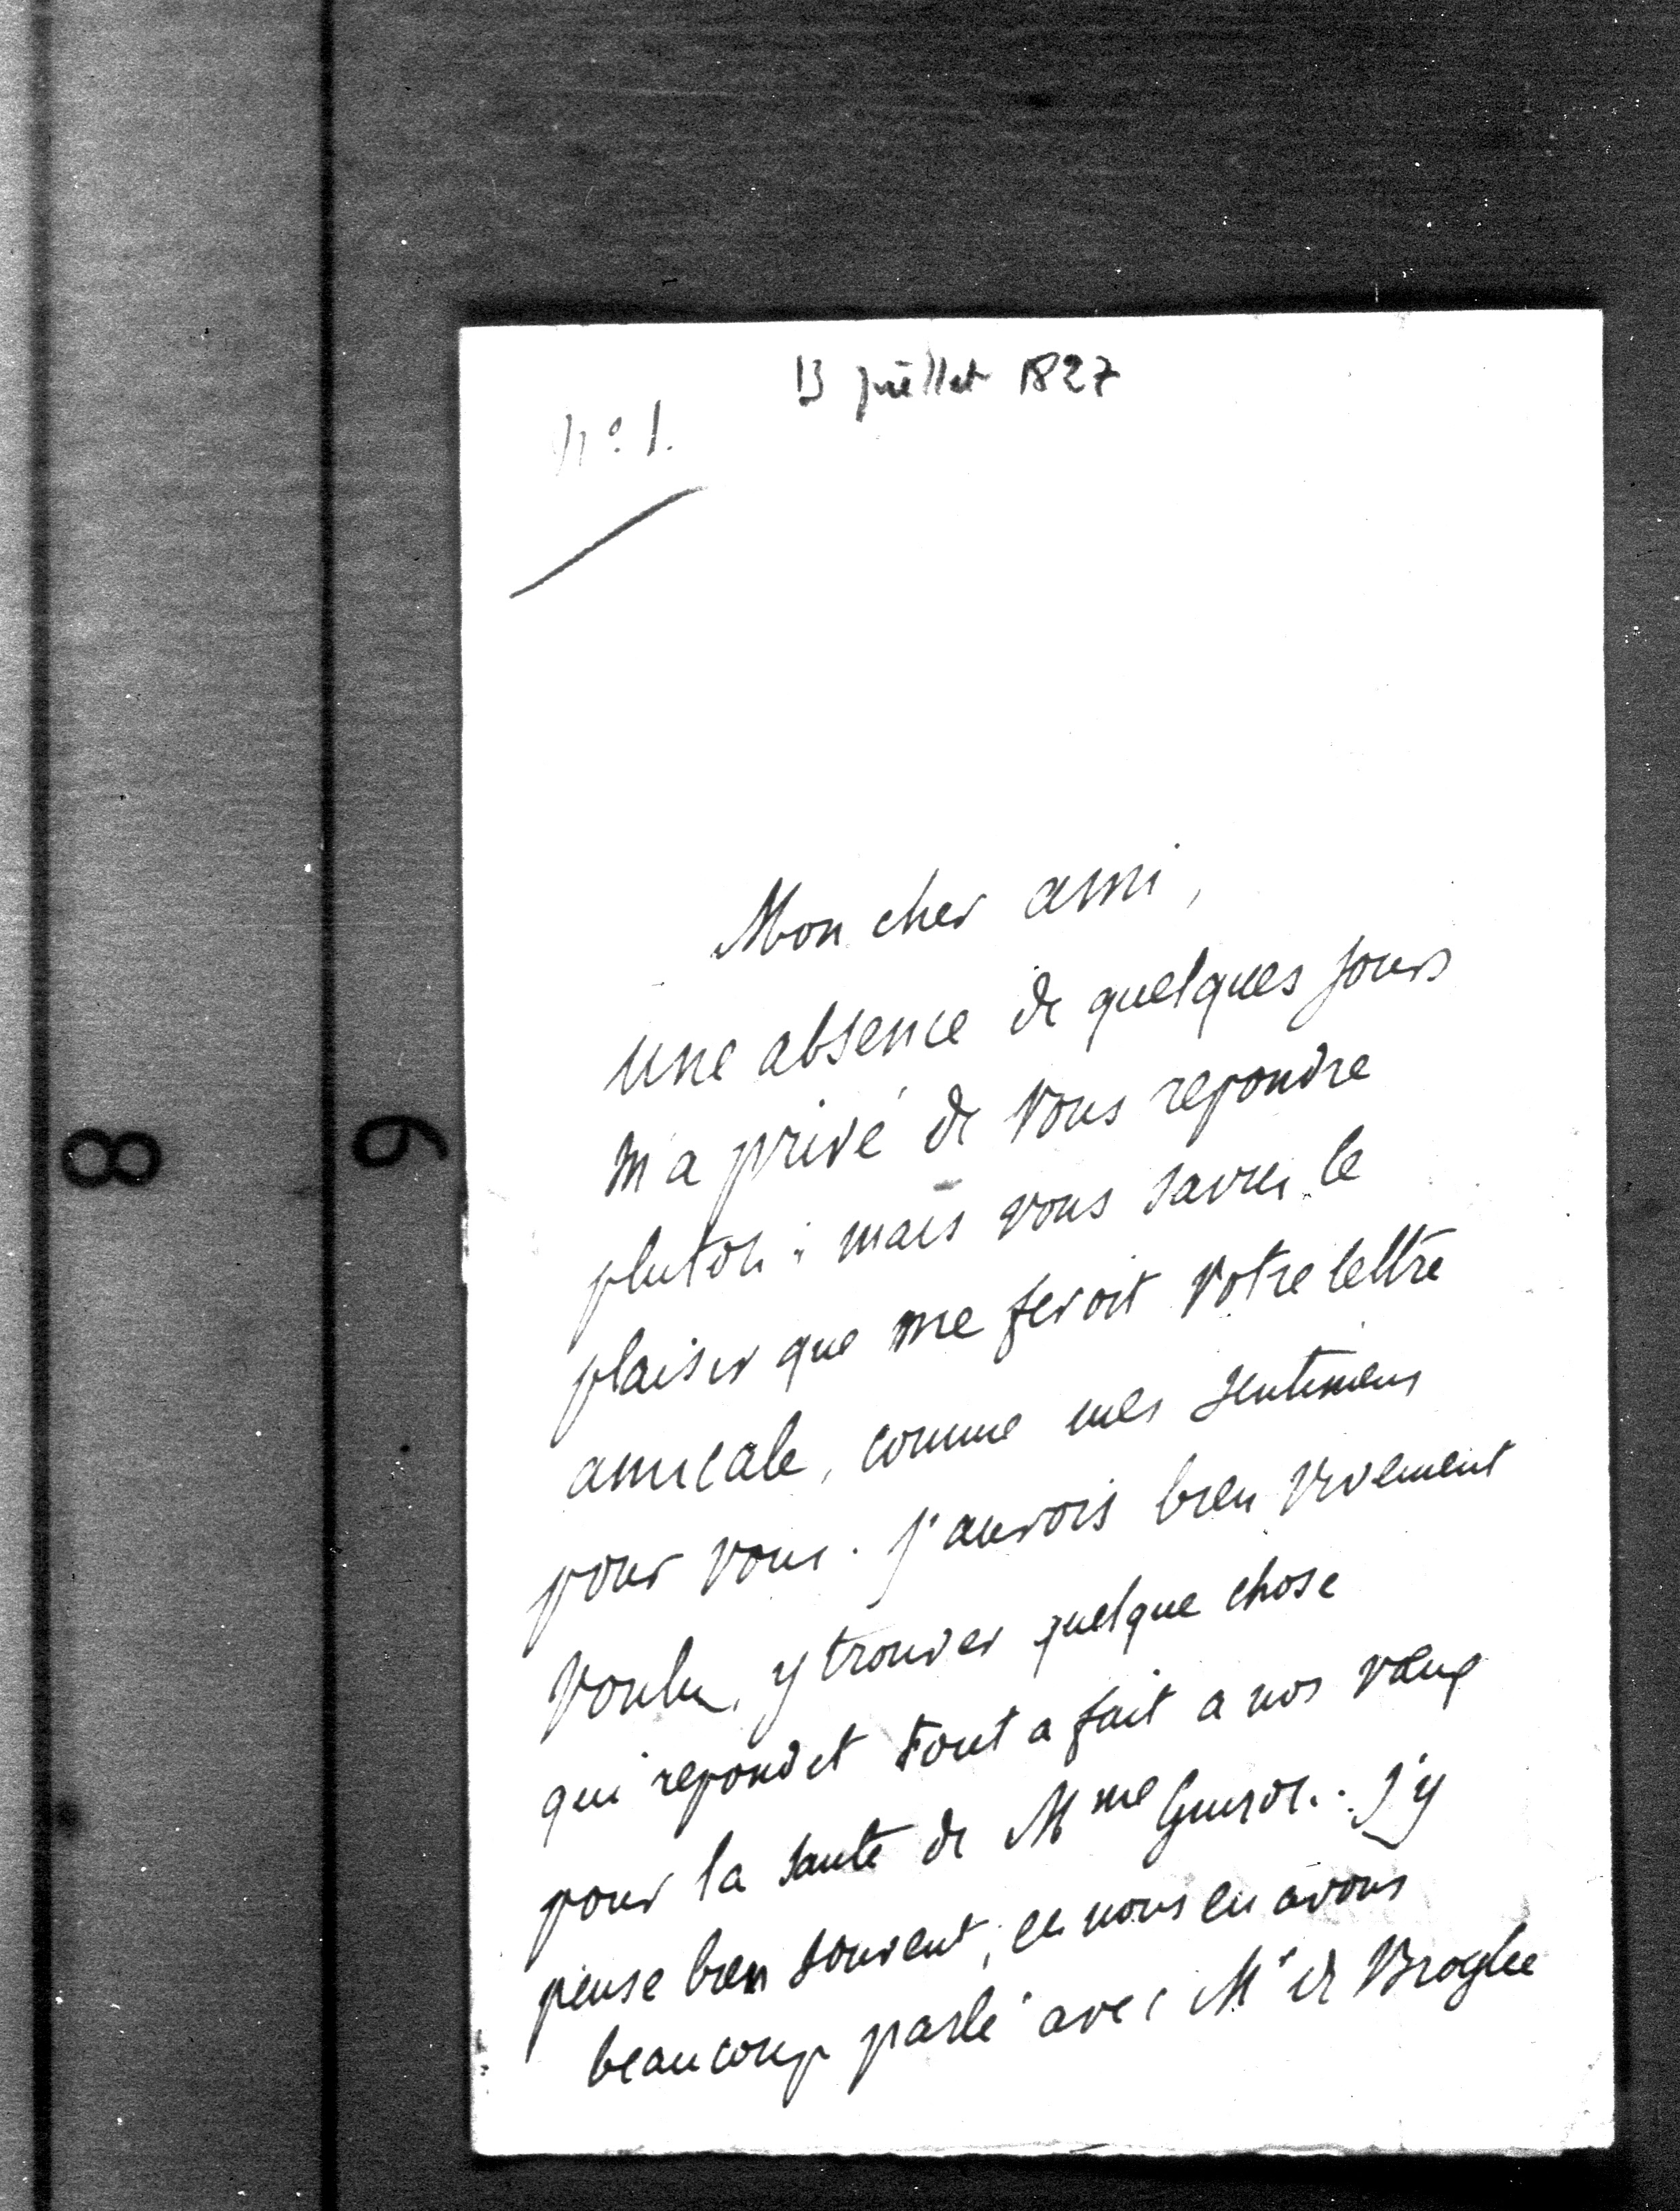 13 juillet 1827
nº 1.
Mon cher ami,
une absence de quelques jours
m'a privé de vous repondre
plutot : mais vous savez le
plaisir que me feroit votre lettre
amicale, comme mes sentimens
pour vous. J'aurois bien vivement
voulu, y trouver quelque chose
qui repondit tout a fait a nos vœux
pour la santé de Mme Guizot. J'y
pense bien souvent, et nous en avons
beaucoup parlé avec Mr de Broglie
8
9